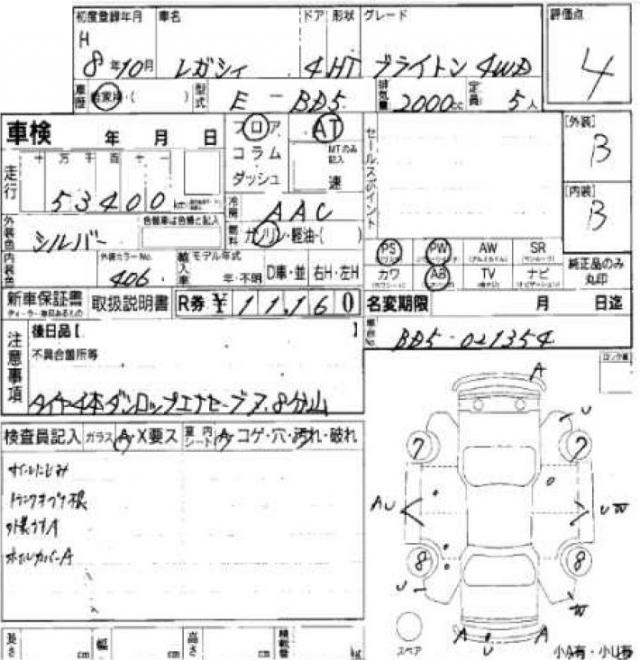 初度登録年月 車名 ドア 形状 グレード 評価点
H
8年10月 レガシィ 4 HT ブライトン 4WD 4
車歴 自家用・( ) 型式 E-BD5 排気量 2000cc 定員 5人
車検 年 月 日 フロア AT セールスポイント [外装]
十 万 千 百 十 一 コラム MTのみ記入 B
走行 53400 ダッシュ 速 [内装]
冷房 AAC B
外装色 シルバー 色替車は色替と記入 燃料 ガソリン・軽油・( )
PS PW AW SR
内装色 外装カラーNo. 406 輸入車 モデル年式 年・不明 D車・並 右H・左H カワ AB TV ナビ 純正品のみ丸印
新車保証書 取扱説明書 R券 ¥ 11,160 名変期限 月 日迄
注意事項 後日品【 】 車台No. BD5-021354
不具合箇所等
タイヤ4本ダンロップエナセーブ7.8分山
検査員記入 ガラス A・X要ス 室内シート A・コゲ・穴・汚れ・破れ
A
U
7 7
AU UW
8 8
U W
A U A
スペア 小A有・小U有
長さ cm 幅 cm 高さ cm 積載量 kg